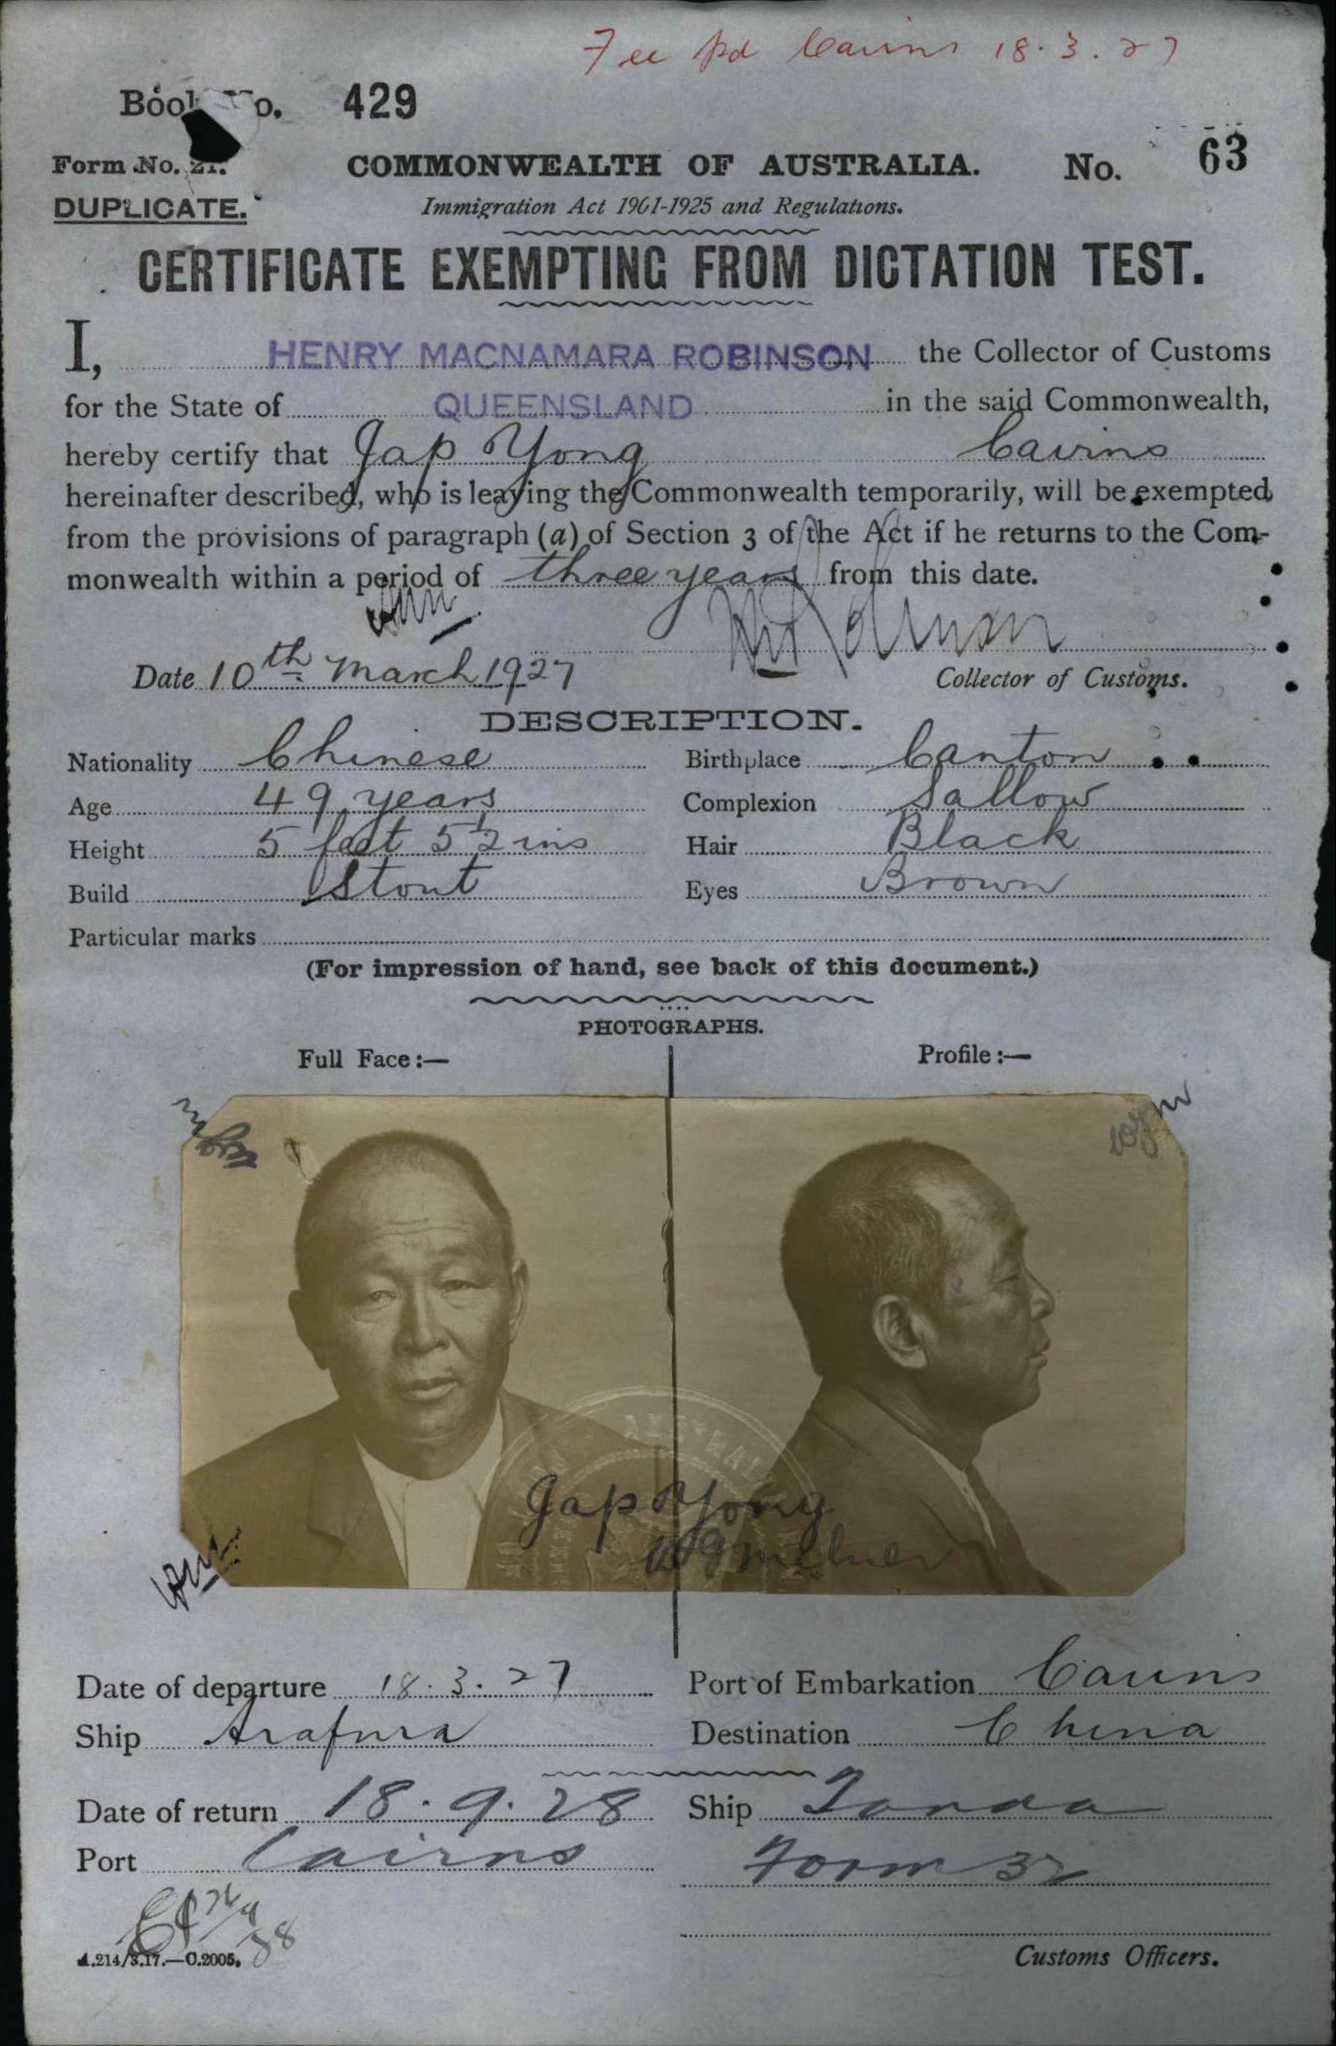 Fee pd Cairns 18.3.27
Book No. 429
Form No. 21. COMMONWEALTH OF AUSTRALIA. No. 63
DUPLICATE. Immigration Act 1901-1925 and Regulations.
CERTIFICATE EXEMPTING FROM DICTATION TEST.
I, HENRY MACNAMARA ROBINSON the Collector of Customs
for the State of QUEENSLAND in the said Commonwealth,
hereby certify that Jap Yong Cairns
hereinafter described, who is leaving the Commonwealth temporarily, will be exempted
from the provisions of paragraph (a) of Section 3 of the Act if he returns to the Com-
monwealth within a period of three years from this date.
Date 10th March 1927 Collector of Customs.
DESCRIPTION.
Nationality Chinese Birthplace Canton
Age 49 years Complexion Sallow
Height 5 feet 5½ ins Hair Black
Build Stout Eyes Brown
Particular marks
(For impression of hand, see back of this document.)
PHOTOGRAPHS.
Full Face:— Profile:—
Jap Yong
W G Milner
Date of departure 18.3.27 Port of Embarkation Cairns
Ship Arafura Destination China
Date of return 18.9.28 Ship Tanda
Port Cairns Form 32
A.214/3.17.—C.2005. Customs Officers.